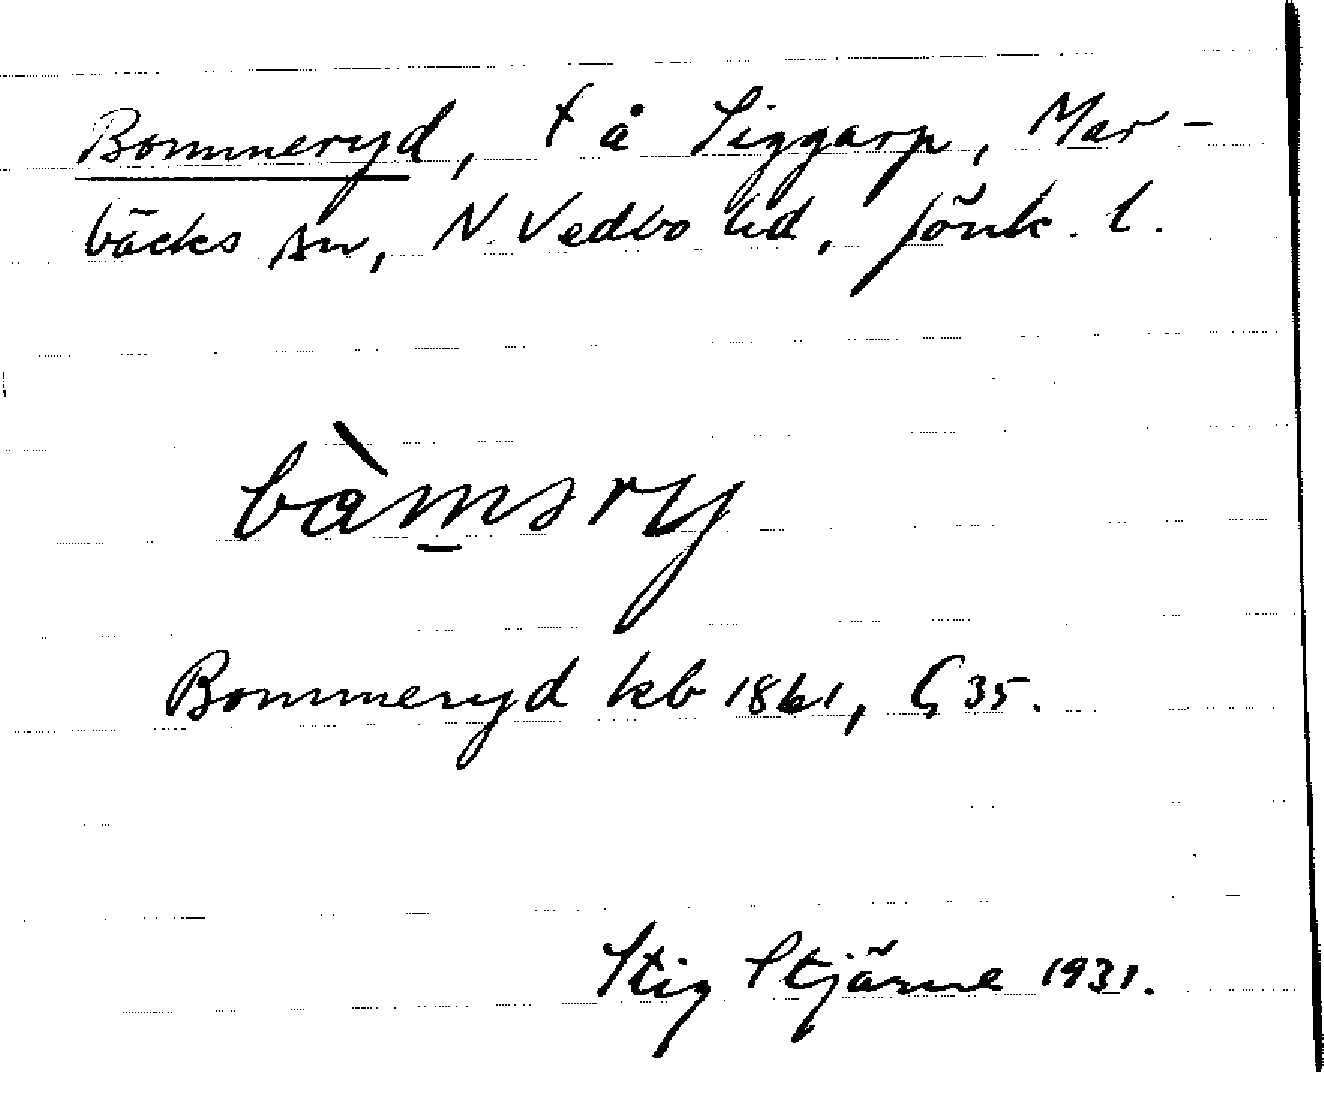 Bommeryd, t å Siggarp, Mar-
bäcks sn, N. Vedbo hd, Jönk. l.
bàm̱ɜry
Bommeryd kb 1861, C 35.
Stig Stjärne 1931.